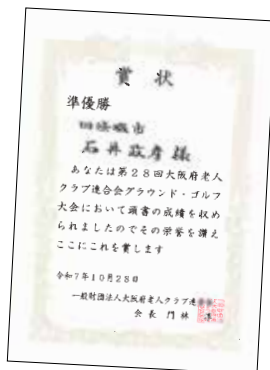 賞状
準優勝
四條畷市
石井政彦様
あなたは第28回大阪府老人
クラブ連合会グラウンド・ゴルフ
大会において頭書の成績を収め
られましたのでその栄誉を讃え
ここにこれを賞します
令和7年10月28日
一般財団法人大阪府老人クラブ連合会
会長 門林